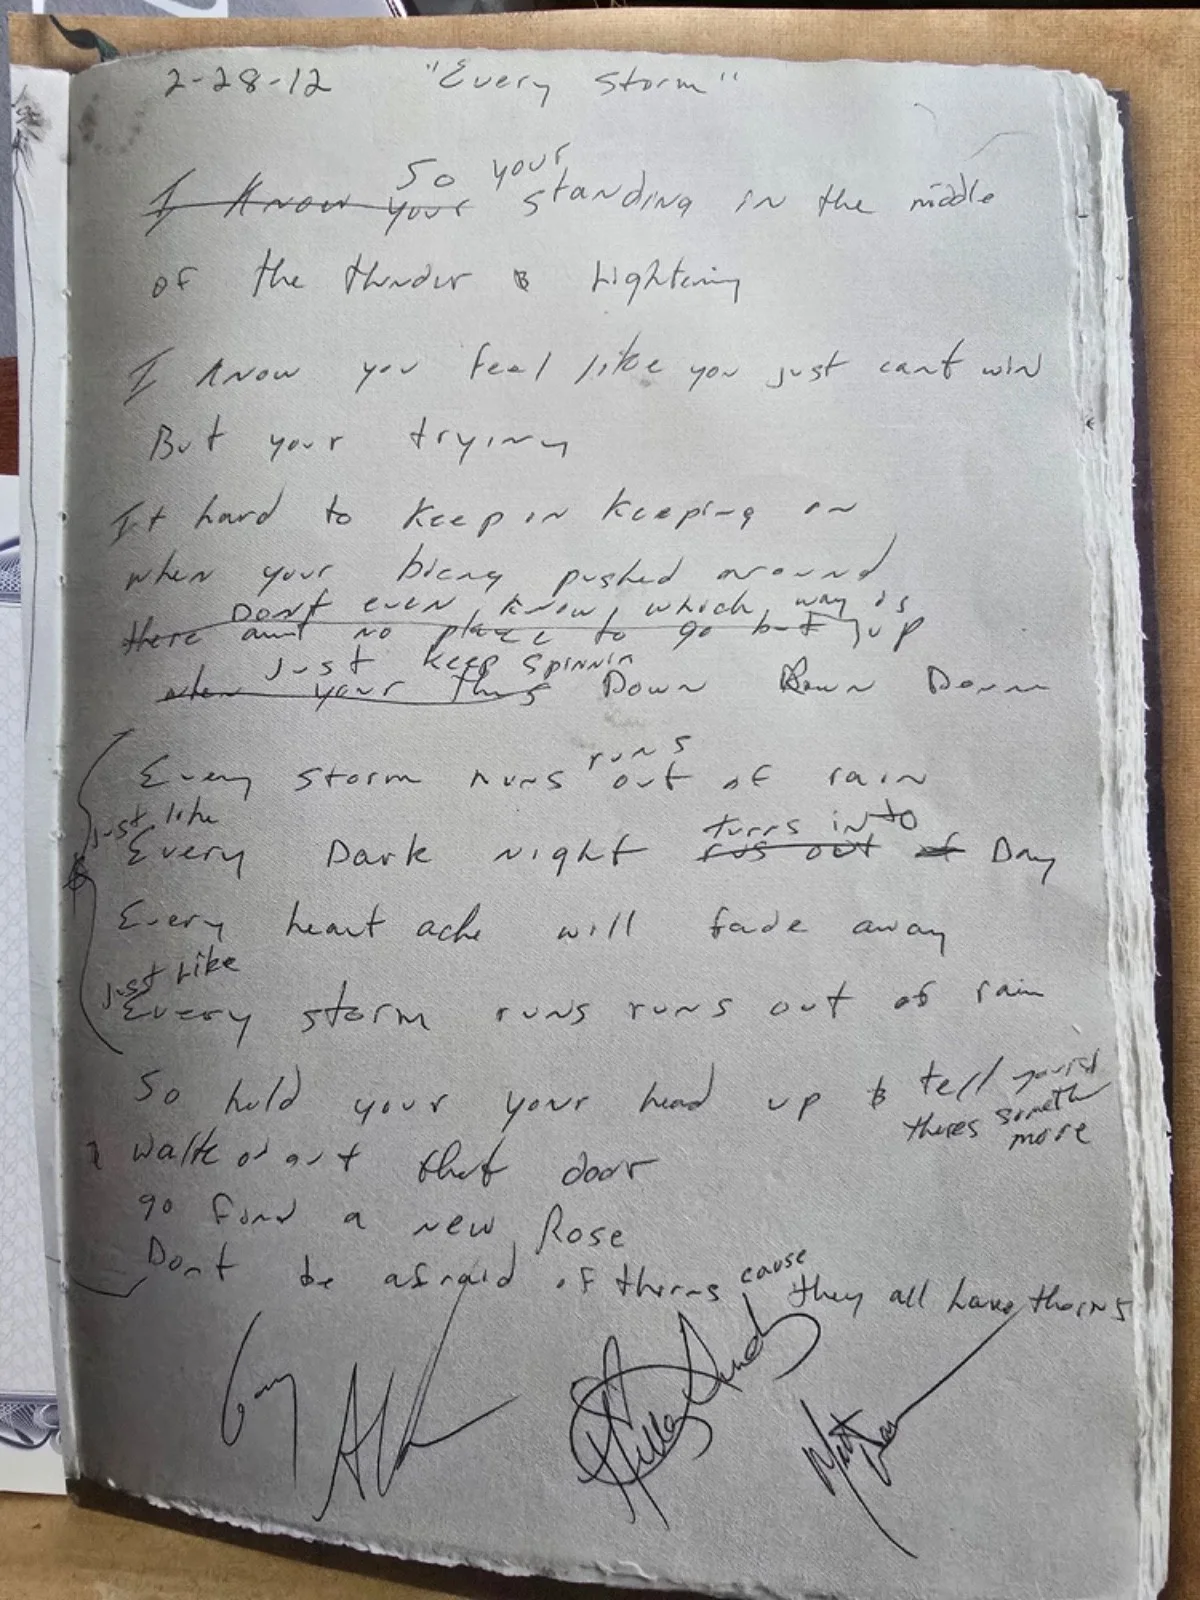 2-28-12 "Every Storm"
So your
I know your standing in the middle
of the thunder & Lightening
I know you feel like you just cant win
But your trying
It hard to keep on keeping on
when your bieng pushed around
Dont even know which way is
there aint no place to go but up
Just keep spinnin
when your this Down Down Down
runs
Every storm runs out of rain
just like
Every Dark night
turns into
rus out of Day
Every heart ache will fade away
just Like
Every storm runs runs out of rain
So hold your your head up & tell
theres someth
more
walk out that door
go find a new Rose
Dont be afraid of thorns cause they all have thorns
Gary